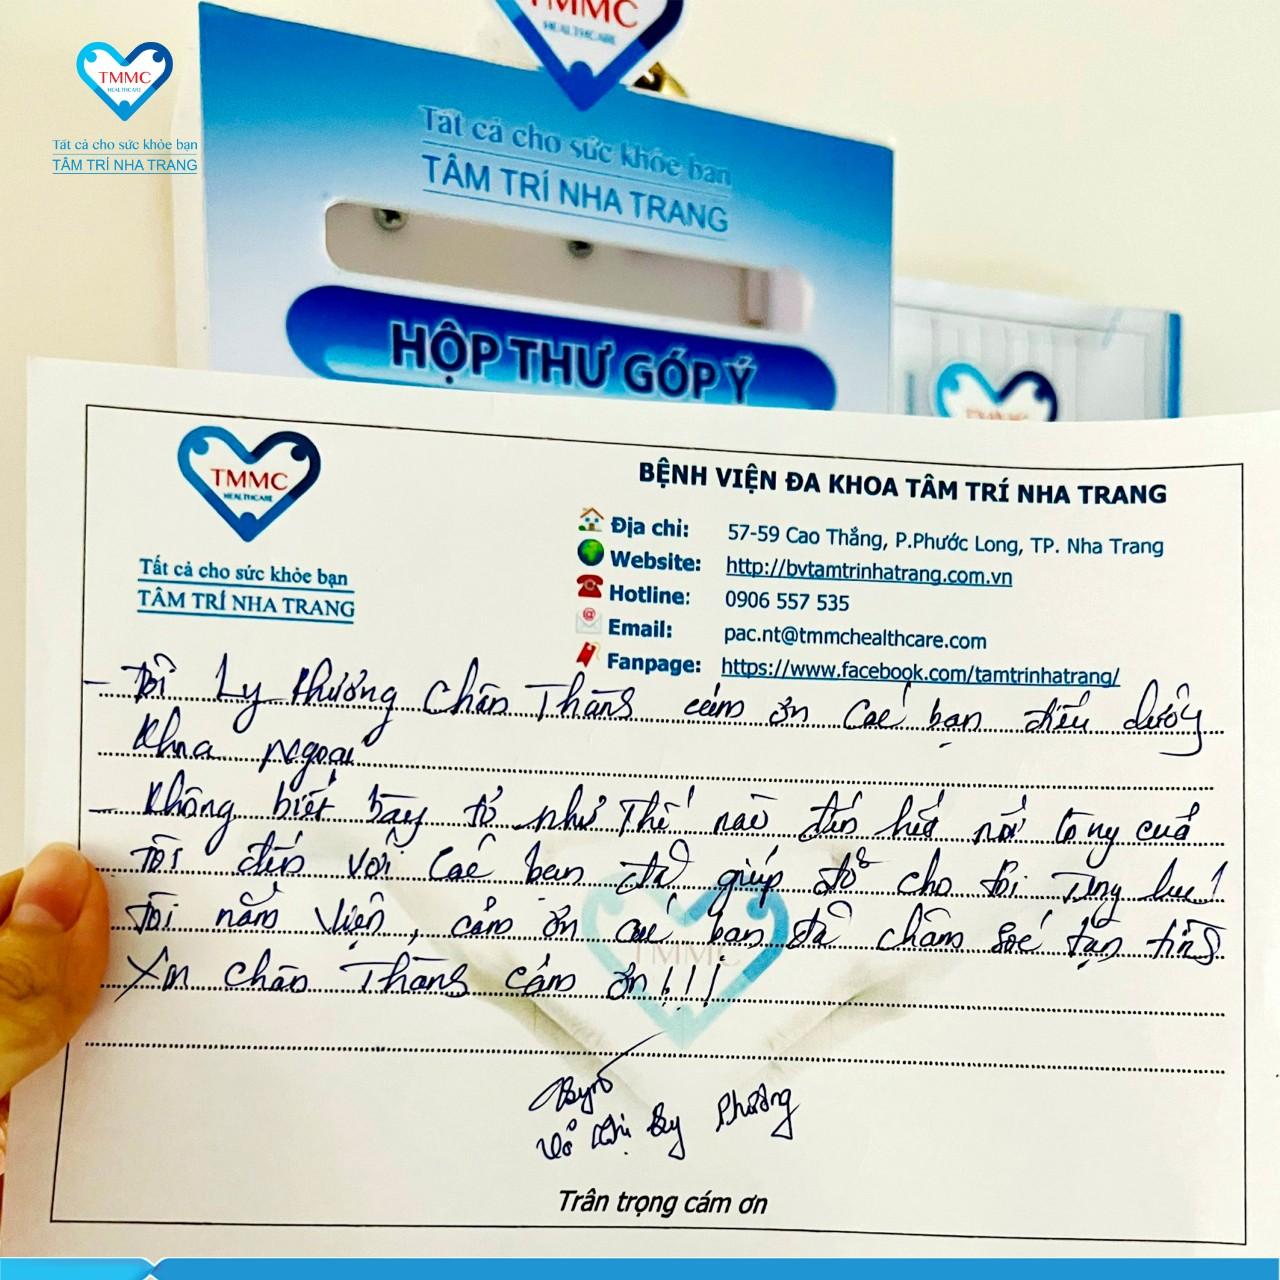 TMMC
HEALTHCARE
Tất cả cho sức khỏe bạn
TÂM TRÍ NHA TRANG
TMMC
HEALTHCARE
Tất cả cho sức khỏe bạn
TÂM TRÍ NHA TRANG
HỘP THƯ GÓP Ý
TMMC
HEALTHCARE
Tất cả cho sức khỏe bạn
TÂM TRÍ NHA TRANG
BỆNH VIỆN ĐA KHOA TÂM TRÍ NHA TRANG
Địa chỉ: 57-59 Cao Thắng, P.Phước Long, TP. Nha Trang
Website: http://bvtamtrinhatrang.com.vn
Hotline: 0906 557 535
Email: pac.nt@tmmchealthcare.com
Fanpage: https://www.facebook.com/tamtrinhatrang/
- Tôi Ly Phương Chân Thành cám ơn các bạn điều dưỡng
Khoa Ngoại
- Không biết bày tỏ như thế nào đến hết nỗi lòng của
tôi đến với các bạn đã giúp đỡ cho tôi trong lúc
tôi nằm viện, cám ơn các bạn đã chăm sóc tận tình
Xin chân thành cám ơn!!!
TMMC
Võ Thị Ly Phương
Trân trọng cám ơn